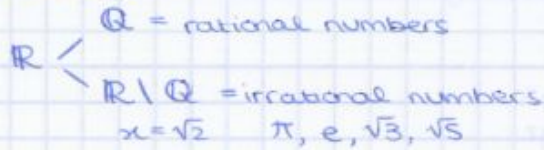 ℚ = rational numbers
ℝ
ℝ \ ℚ = irrational numbers
x = √2 π, e, √3, √5